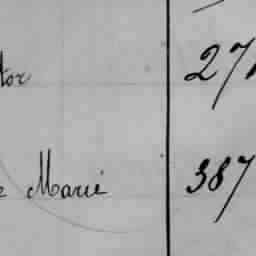 tor 27
e Marie 387